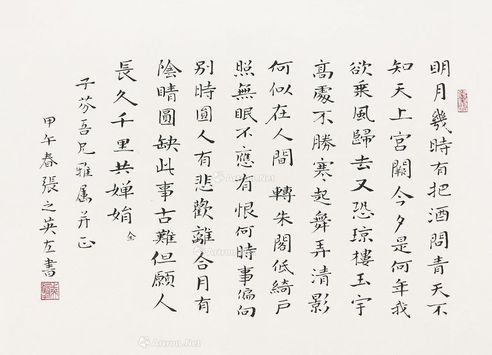 明月幾時有把酒問青天不
知天上宮闕今夕是何年我
欲乘風歸去又恐瓊樓玉宇
高處不勝寒起舞弄清影
何似在人間 轉朱閣低綺戶
照無眠不應有恨何時事偏向
別時圓人有悲歡離合月有
陰晴圓缺此事古難但願人
長久千里共嬋娟 全
子芬吾兄雅屬并正
甲午春張之英左書
Artron.Net